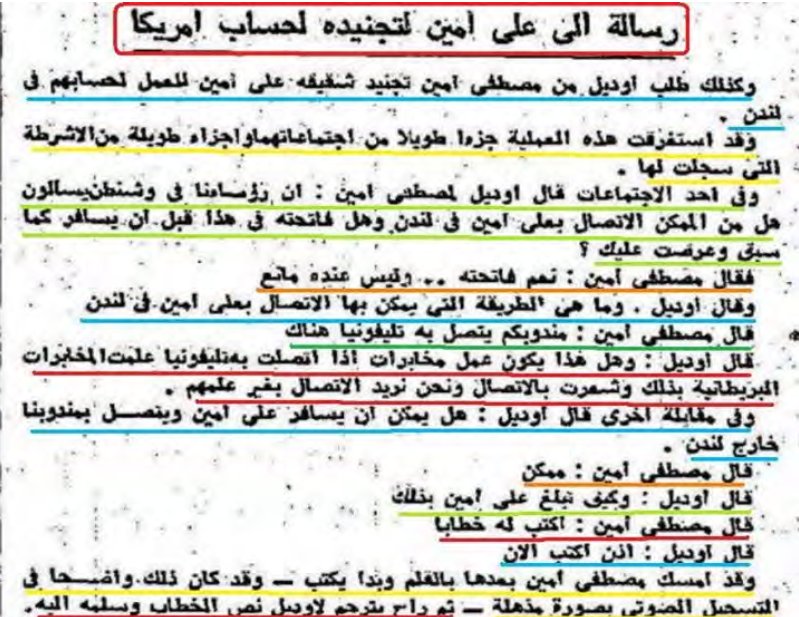 رسالة الى على امين لتجنيده لحساب امريكا
وكذلك طلب اوديل من مصطفى امين تجنيد شقيقه على امين للعمل لحسابهم فى
لندن .
وقد استغرقت هذه العملية جزءا طويلا من اجتماعاتهما واجزاء طويلة من الاشرطة
التى سجلت لها .
وفى احد الاجتماعات قال اوديل لمصطفى امين : ان رؤساءنا فى وشنطن يسالون
هل من الممكن الاتصال بعلى امين فى لندن وهل فاتحته فى هذا قبل ان يسافر كما
سبق وعرضت عليك ؟
فقال مصطفى امين : نعم فاتحته .. وليس عنده مانع
وقال اوديل . وما هى الطريقة التى يمكن بها الاتصال بعلى امين فى لندن
قال مصطفى امين : مندوبكم يتصل به تليفونيا هناك
قال اوديل : وهل هذا يكون عمل مخابرات اذا اتصلت به تليفونيا علمت المخابرات
البريطانية بذلك وشعرت بالاتصال ونحن نريد الاتصال بغير علمهم .
وفى مقابلة اخرى قال اوديل : هل يمكن ان يسافر على امين ويتصل بمندوبنا
خارج لندن .
قال مصطفى امين : ممكن
قال اوديل : وكيف تبلغ على امين بذلك
قال مصطفى امين : اكتب له خطابا
قال اوديل : اذن اكتب الان
وقد امسك مصطفى امين بعدها بالقلم وبدا يكتب — وقد كان ذلك واضحا فى
التسجيل الصوتى بصورة مذهلة — ثم راح يترجم لاوديل نص الخطاب وسلمه اليه .